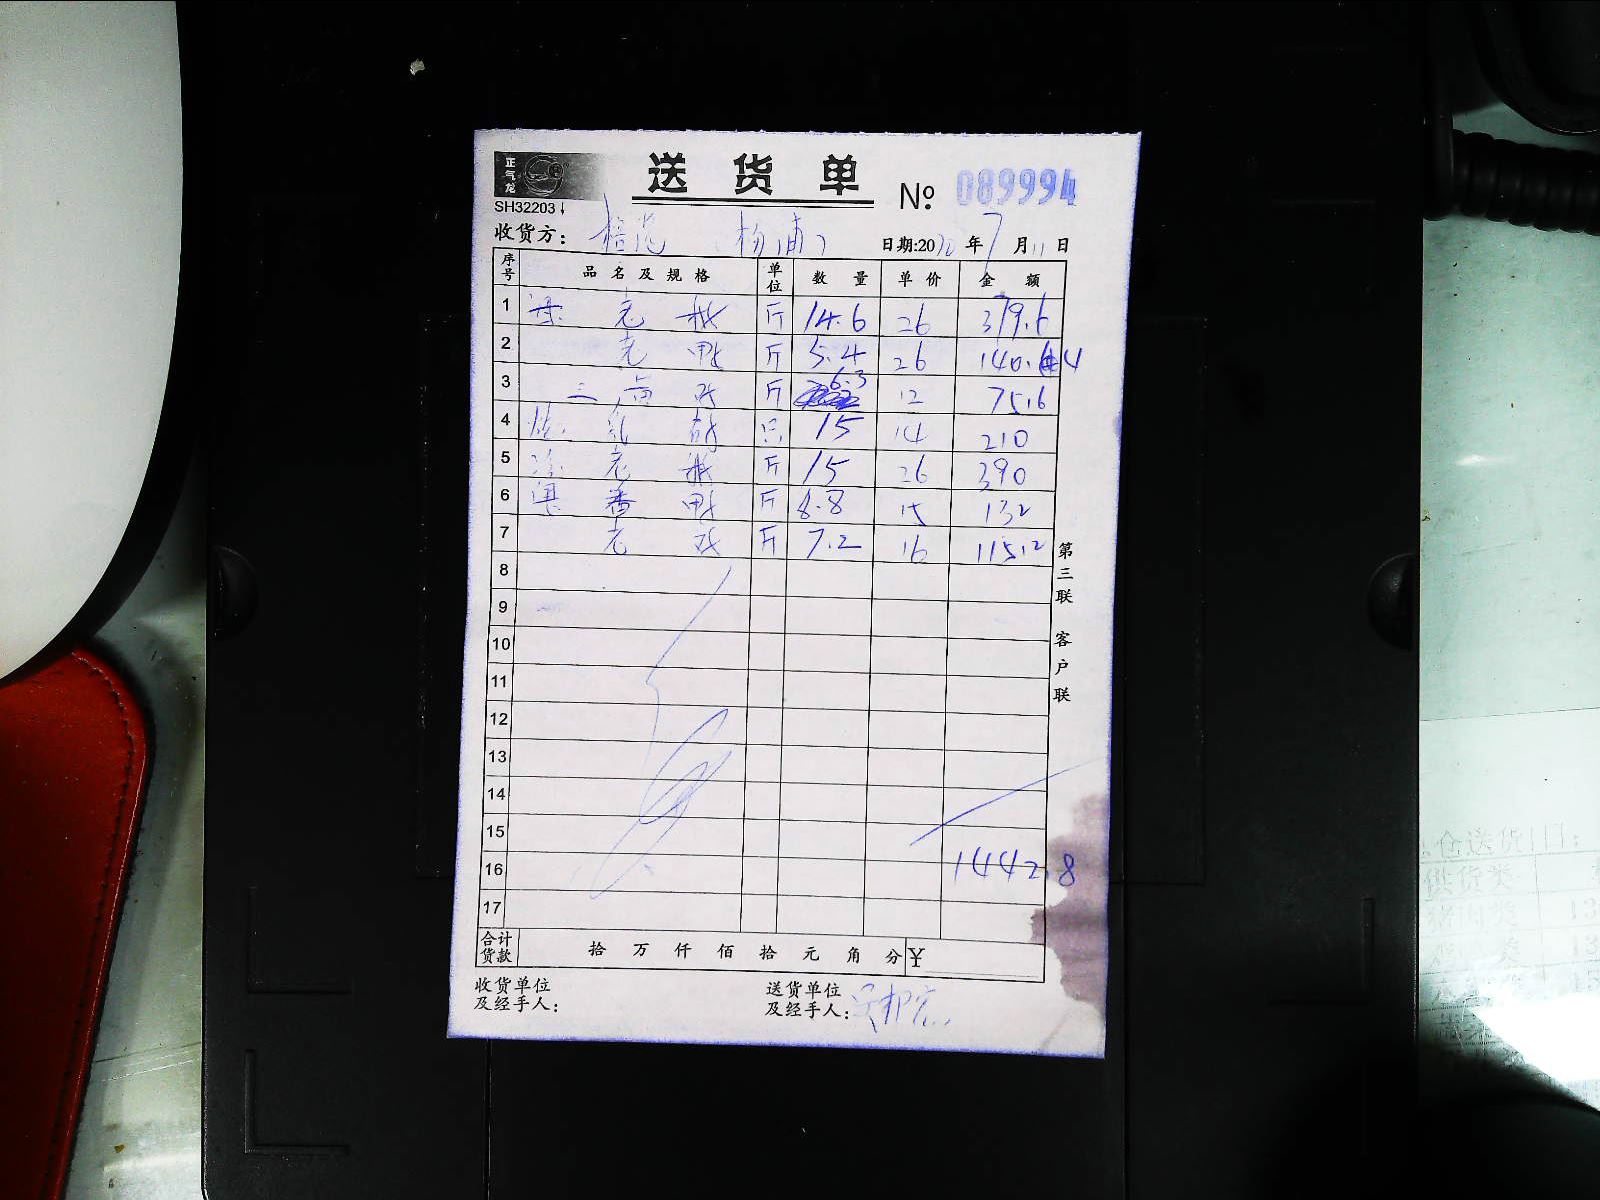 正气龙
送货单 № 089994
SH32203
收货方: (杨浦) 日期:2020年7月11日
序号 品名及规格 单位 数量 单价 金额
1 老 斤 14.6 26 379.6
2 老 鸭 斤 5.4 26 140.4
3 三黄 斤 6.3 12 75.6
4 乳鸽 只 15 14 210
5 老 斤 15 26 390
6 番鸭 斤 8.8 15 132
7 老 斤 7.2 16 115.2
8
9
10
11
12
13
14
15
16 1442.8
17
合计货款 拾 万 仟 佰 拾 元 角 分 ¥
收货单位 送货单位
及经手人: 及经手人:
第三联 客户联
仓送货日:
供货类
猪肉类 13
类 13
15